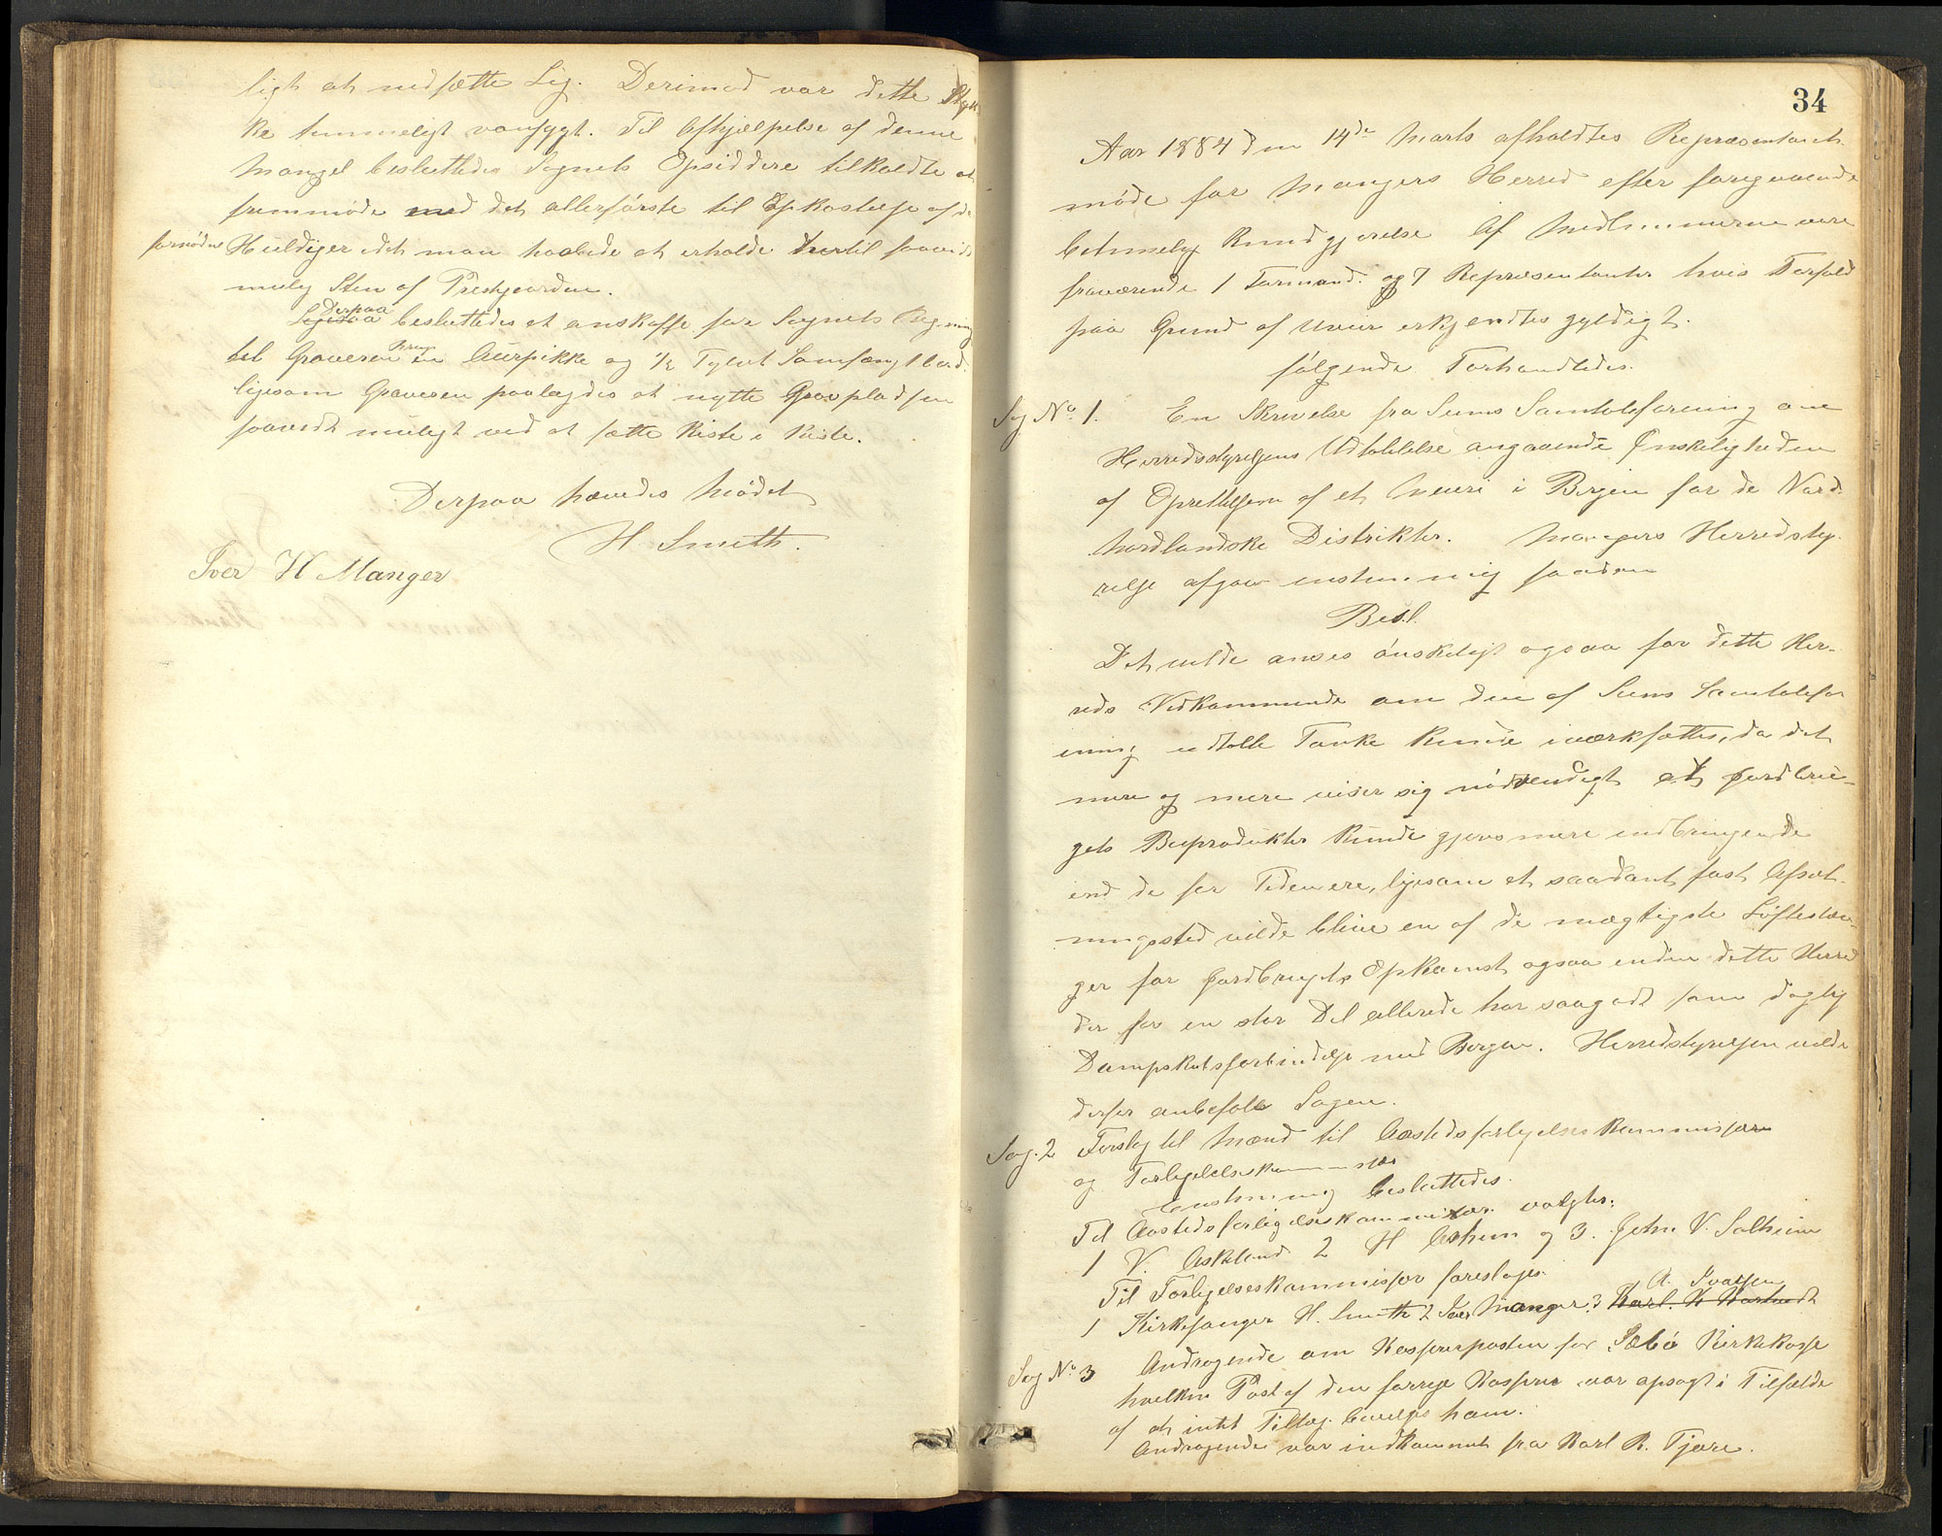 ligt at nedsætte Lig. Derimod var dette Styk-
ke temmeligt vansygt. Til Afhjælpelse af denne
Mangel besluttedes Sognets Opsiddere tilkaldte at
fremmøde med det allerførste til Opkastelse af de
fornødne Huldiger idet man haabede at erholde dertil saavidt
mulig Sten af Prestgaarden.
Ligesaa Derpaa besluttedes at anskaffe for Sognets Regning
til Graverens Brug en Aurpikke og ½ Tylvt Bord
ligesom Graveren paalagdes at nytte Gravpladsen
saavidt muligt ved at sætte Kiste i Kiste.
Derpaa hævedes Mødet
H Smith.
Iver H Manger
34
Aar 1884 den 14de Marts afholdtes Repræsentant-
møde for Mangers Herred efter foregaaende
betimelig Kundgjørelse Af Medlemmerne vare
fraværende 1 Formand og 7 Repræsentanter hvis Forfald
paa Grund af Uveir erkjendtes gyldigt.
følgende Forhandledes.
Sag No 1. En Skrivelse fra Seims Samtaleforening om
Herredsstyrelsens Udtalelse angaaende Ønskeligheden
af Oprettelsen af et Meieri i Bergen for de Nord-
hordlandske Distrikter. Mangers Herredsty-
relse afgav enstemmig saadan
Besl.
Det vilde anses ønskeligt ogsaa for dette Her-
reds Vedkommende om den af Seims Samtalefor
ening udtalte Tanke kunde iværksættes, da det
mere og mere viser sig nødvendigt at Jordbru-
gets Biprodukter kunde gjøres mere indbringende
end de for Tiden ere, ligesom et saadant fast Afsæt-
ningssted vilde blive en af de mægtigste Løftestæn-
ger for Jordbrugets Opkomst ogsaa inden dette Herred
der for en stor Del allerede har saagodt som daglig
Dampskibsforbindelse med Bergen. Herredstyrelsen vilde
derfor anbefale Sagen.
Sag. 2 Forslag til Mænd til Aastedsforligelseskommissær
og Forligelseskommissær
Enstemmig besluttedes.
Til Aastedsforligelseskommissær valgtes:
1 V. Askeland 2 H Askem og 3. John V. Solheim
Til Forligelseskommissær foresloges:
A. Ivarsen
1 Kirkesanger H. Smith 2 Iver Manger 3 Karl K
Sag No 3 Andragende om Kassererposten for Sæbø Kirkekasse
hvilken Post af den forrige Kasserer var opsagt i Tilfælde
af at intet Tillæg bevilges ham.
Andragende var indkommet fra Karl R. Fjære.